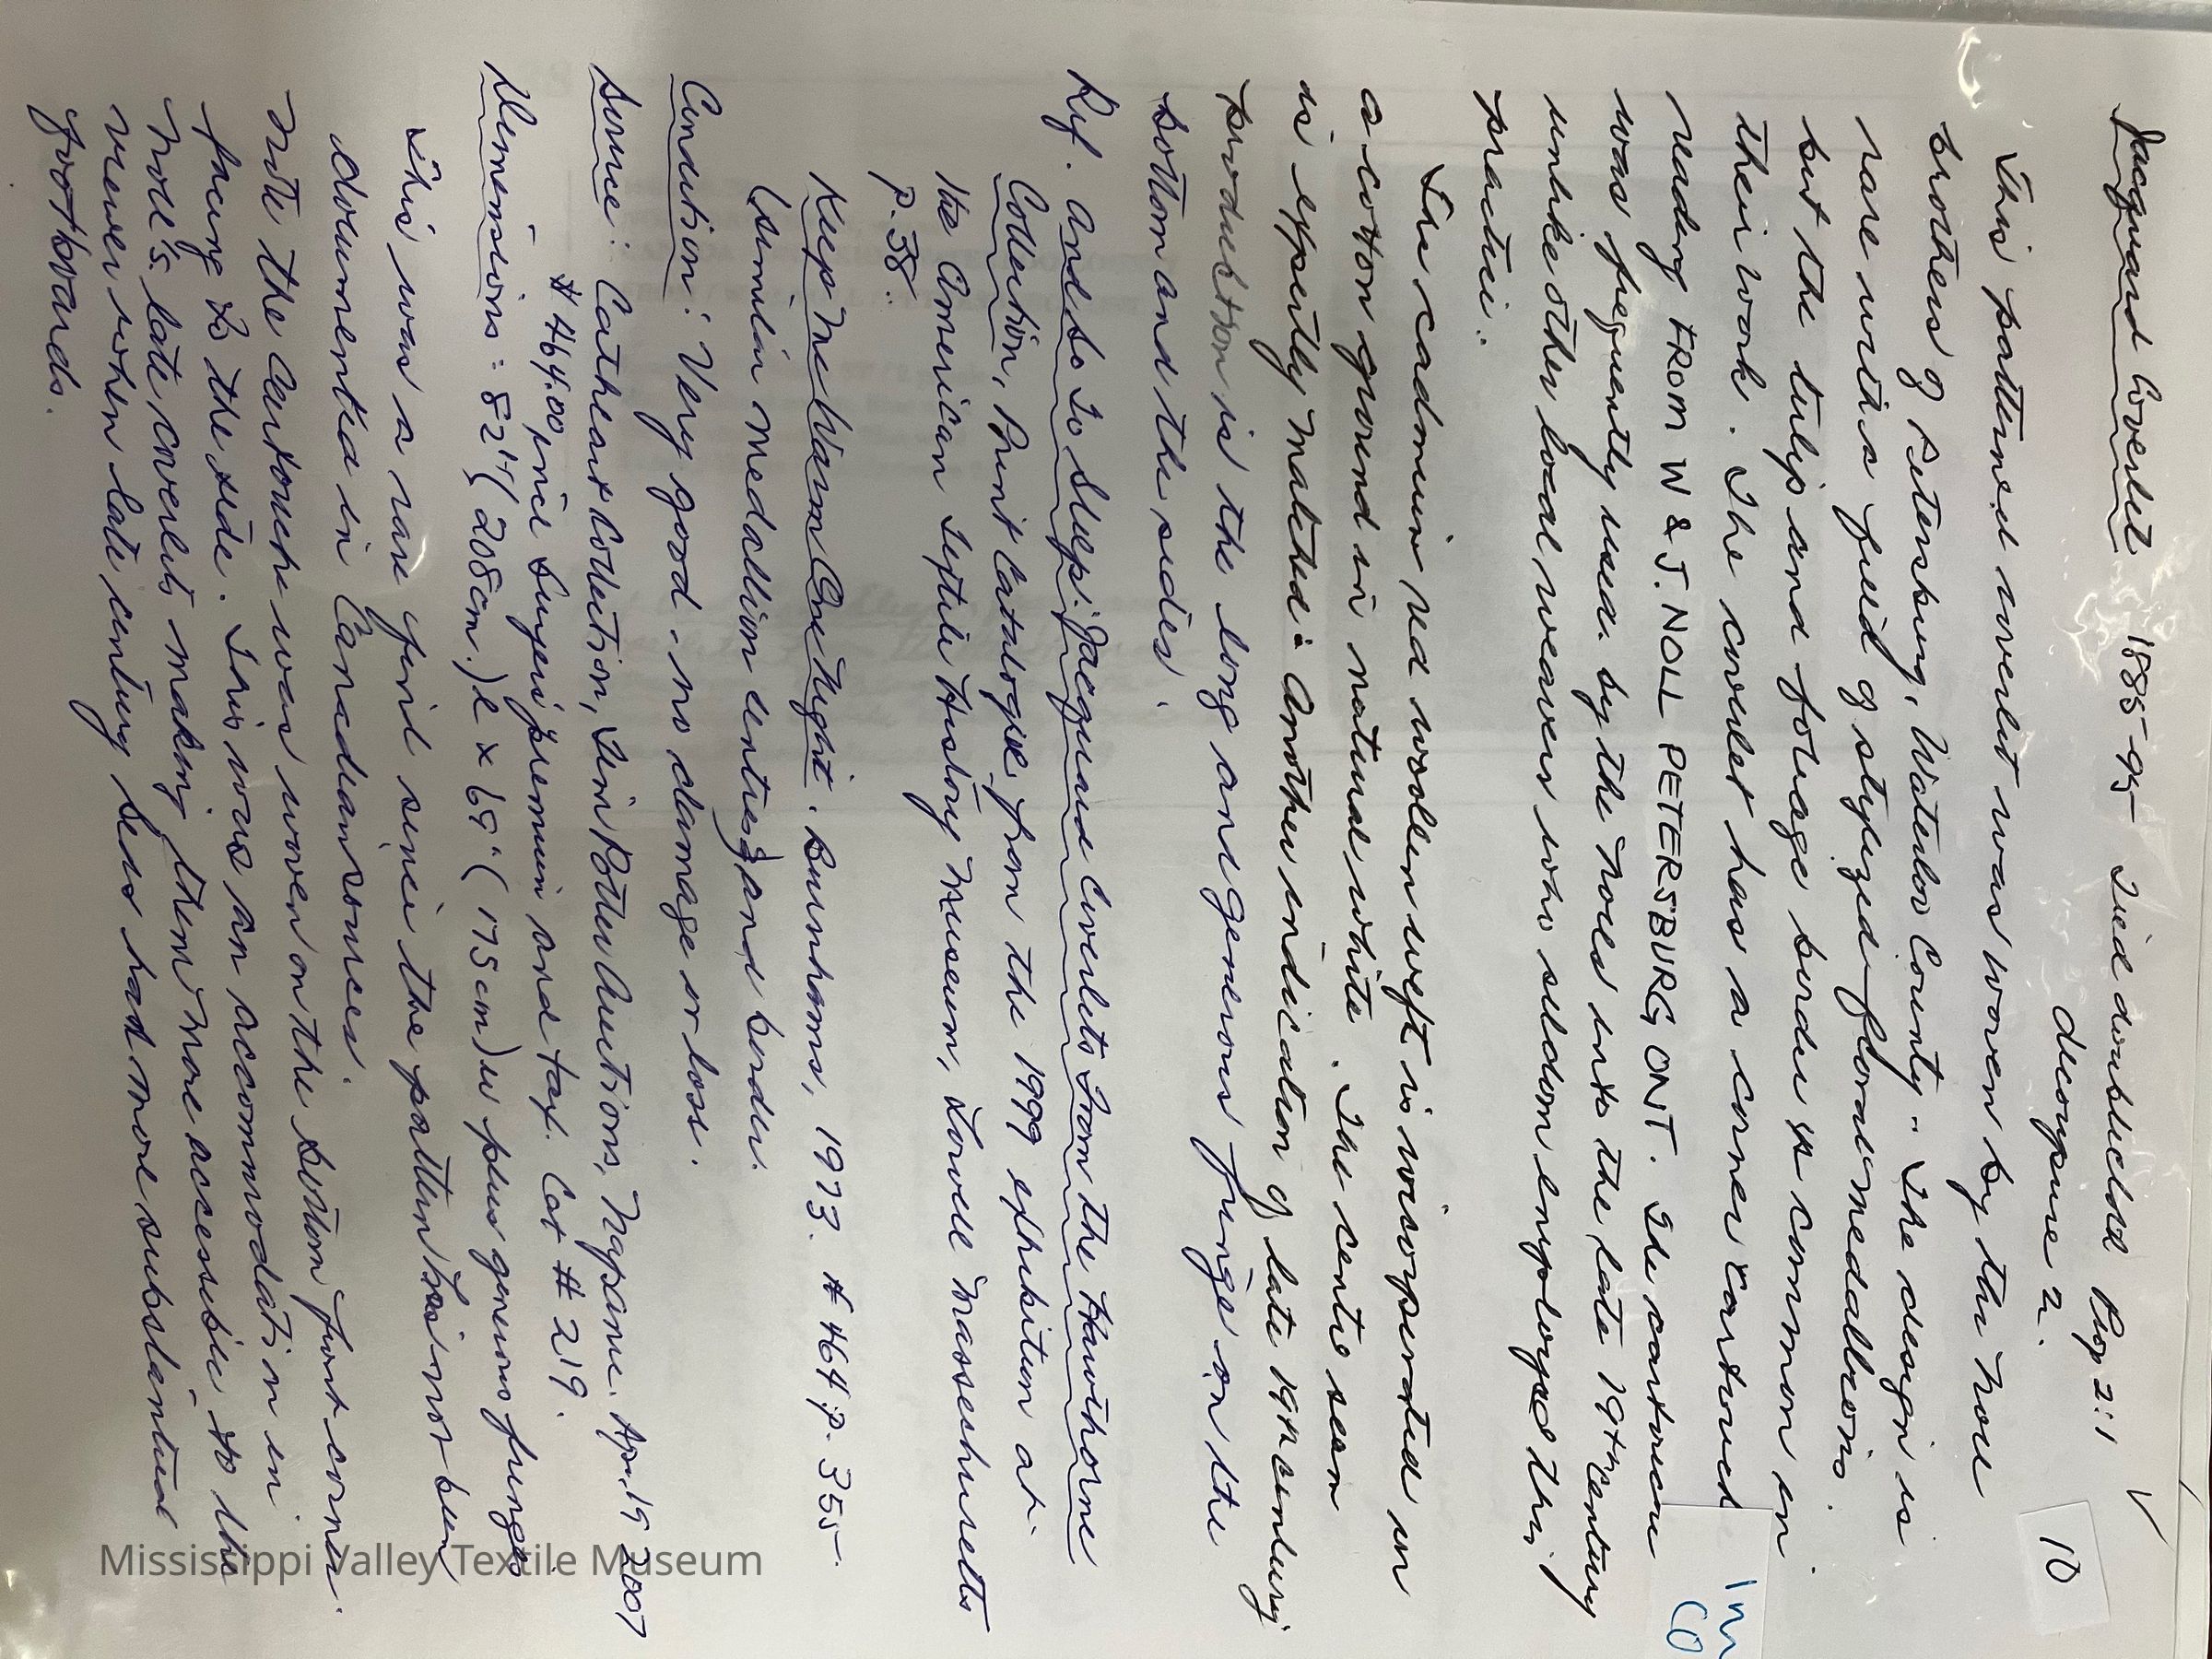 Jacquard Coverlet 1885-95 Tied doublecloth Prop 2:1
decoupure 2.
10
This patterned coverlet was woven by the Noll
brothers of Petersburg, Waterloo County. The design is
rare with a field of stylized floral medallions
but the tulip and foliage border is common in
their work. The coverlet has a corner cartouch
reading FROM W & J. NOLL PETERSBURG ONT. The cartouch
was frequently used by the Nolls into the late 19th century
unlike other local weavers who seldom employed this
practice.
The cardinal red woollen weft is incorporated in
a cotton ground in natural white. The centre seam
is expertly matched. Another indication of late 19th century
production is the long and generous fringe on the
bottom and the sides.
Ref. And So To Sleep: Jacquard Coverlets From the Hawthorne
Collection, Print Catalogue from the 1999 exhibition at
the American Textile History Museum, Lowell Massechusetts
P. 38.
Keep Me Warm One Night. Burnhams, 1973. # 464 p. 355.
(similar medallion centres) and border.
Condition: Very good. no damage or loss.
Source: Cathcart Collection, Tim Potter Auction, Napanee. Apr. 19 2007
# 464.00 price buyers premium and tax. Cat # 219.
Demensions: 82"( 208cm.)l x 69"( 175cm)w plus generous fringes
This was a rare find since the pattern has not been
documented in Canadian sources.
Note the cartouch was woven on the bottom front corner
facing to the side. This was an accommodation in
Noll's late coverlets making them more accessible to the
viewer when late century beds had more substantial
footboards.
in
CO
Mississippi Valley Textile Museum